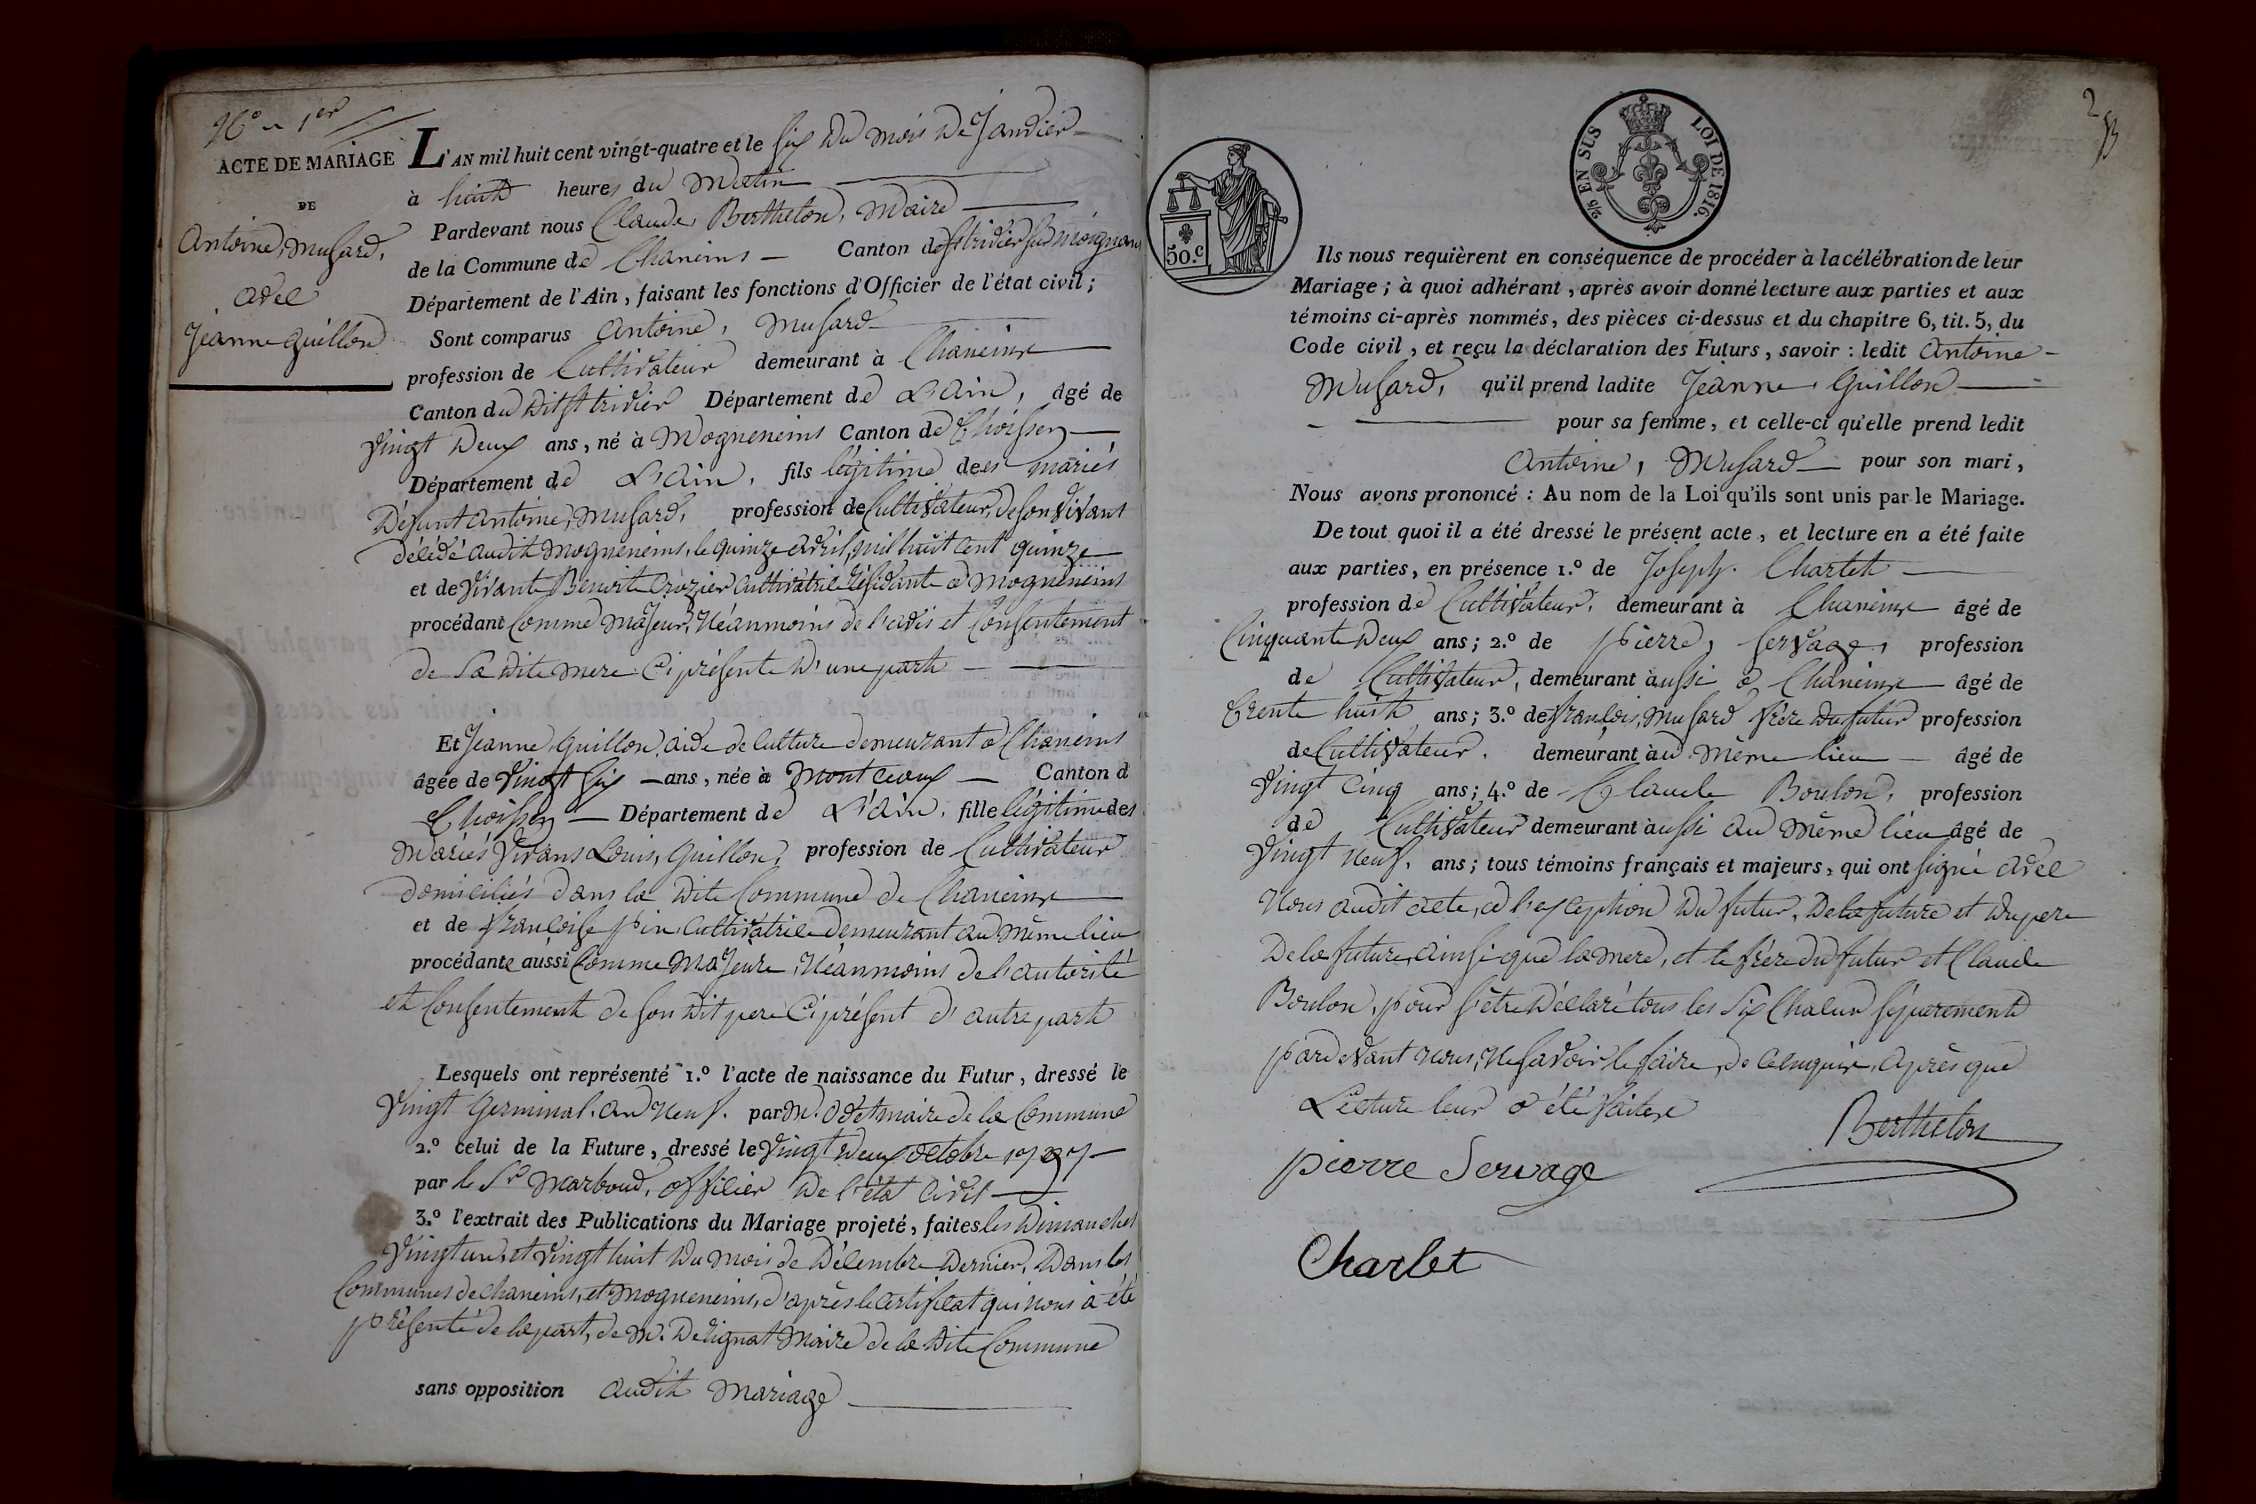 N.º 1er
ACTE DE MARIAGE
DE
Antoine, Musard,
avec
Jeanne Guillon
L'AN mil huit cent vingt-quatre et le six du mois de Janvier
à huit heures du matin
Pardevant nous Claude, Berthelon, Maire
de la Commune de Chaneins Canton de St tridier sur moignans
Département de l'Ain, faisant les fonctions d'Officier de l'état civil;
Sont comparus Antoine, Musard
profession de Cultivateur demeurant à Chaneins
Canton du dit St tridier Département de L'ain, âgé de
vingt deux ans, né à Mogneneins Canton de Thoissey
Département de L'ain, fils légitime de es mariés
Défunt antoine, Musard, profession de Cultivateur, de son vivant
décédé audit Mogneneins, le quinze avril, mil huit cent quinze
et de vivante Benoite Crozier Cultivatrice résidante à Mogneneins
procédant Comme Majeur, Néanmoins de l'avis et Consentement
de Sa dite mere Ci présente d'une part
Et Jeanne, Guillon, aide de Culture demeurant à Chaneins
âgée de vingt six ans, née à Montceaux Canton d
Thoissey Département de L'ain, fille légitime des
mariés vivans Louis, Guillon, profession de Cultivateur
domiciliés dans la dite Commune de Chaneins
et de françoise Pin Cultivatrice demeurant au même lieu
procédante aussi Comme Majeure, Néanmoins de l'autorité
et Consentement de son dit pere Ci présent d'autre part
Lesquels ont représenté 1.º l'acte de naissance du Futur, dressé le
vingt Germinal. an Neuf. par M. maire de la Commune
2.º celui de la Future, dressé le vingt deux octobre 1797
par le Sr Marboud, officier de l'état Civil
3.º l'extrait des Publications du Mariage projeté, faites les dimanches
vingt un, et vingt huit du mois de Décembre dernier, dans les
Communes de Chaneins, et Mogneneins, d'après le Certificat qui nous à été
présenté de la part, de M. Maire de la dite Commune
sans opposition audit mariage
2
5/2 EN SUS LOI DE 1816.
50.c
Ils nous requièrent en conséquence de procéder à la célébration de leur
Mariage; à quoi adhérant, après avoir donné lecture aux parties et aux
témoins ci-après nommés, des pièces ci-dessus et du chapitre 6, tit. 5, du
Code civil, et reçu la déclaration des Futurs, savoir : ledit Antoine
Musard, qu'il prend ladite Jeanne, Guillon
pour sa femme, et celle-ci qu'elle prend ledit
Antoine, Musard pour son mari,
Nous avons prononcé : Au nom de la Loi qu'ils sont unis par le Mariage.
De tout quoi il a été dressé le présent acte, et lecture en a été faite
aux parties, en présence 1.º de Joseph. Charlet
profession de Cultivateur. demeurant à Chaneins âgé de
Cinquante deux ans; 2.º de Pierre, Servage, profession
de Cultivateur, demeurant aussi à Chaneins âgé de
trente huit ans; 3.º de françois, Musard frère du futur profession
de Cultivateur. demeurant au même lieu âgé de
vingt cinq ans; 4.º de Claude Boulon, profession
de Cultivateur demeurant aussi au même lieu âgé de
vingt neuf. ans; tous témoins français et majeurs, qui ont signé avec
Nous audit acte, à l'exception du futur, de la future et du pere
de la future, ainsi que la mere, et le frère du futur et Claude
Boulon, pour s'être déclaré tous les six Chacun séparement
pardevant nous, Ne savoir le faire, de Ce enquis, après que
Lecture leur a été faite
Berthelon
pierre Servage
Charlet